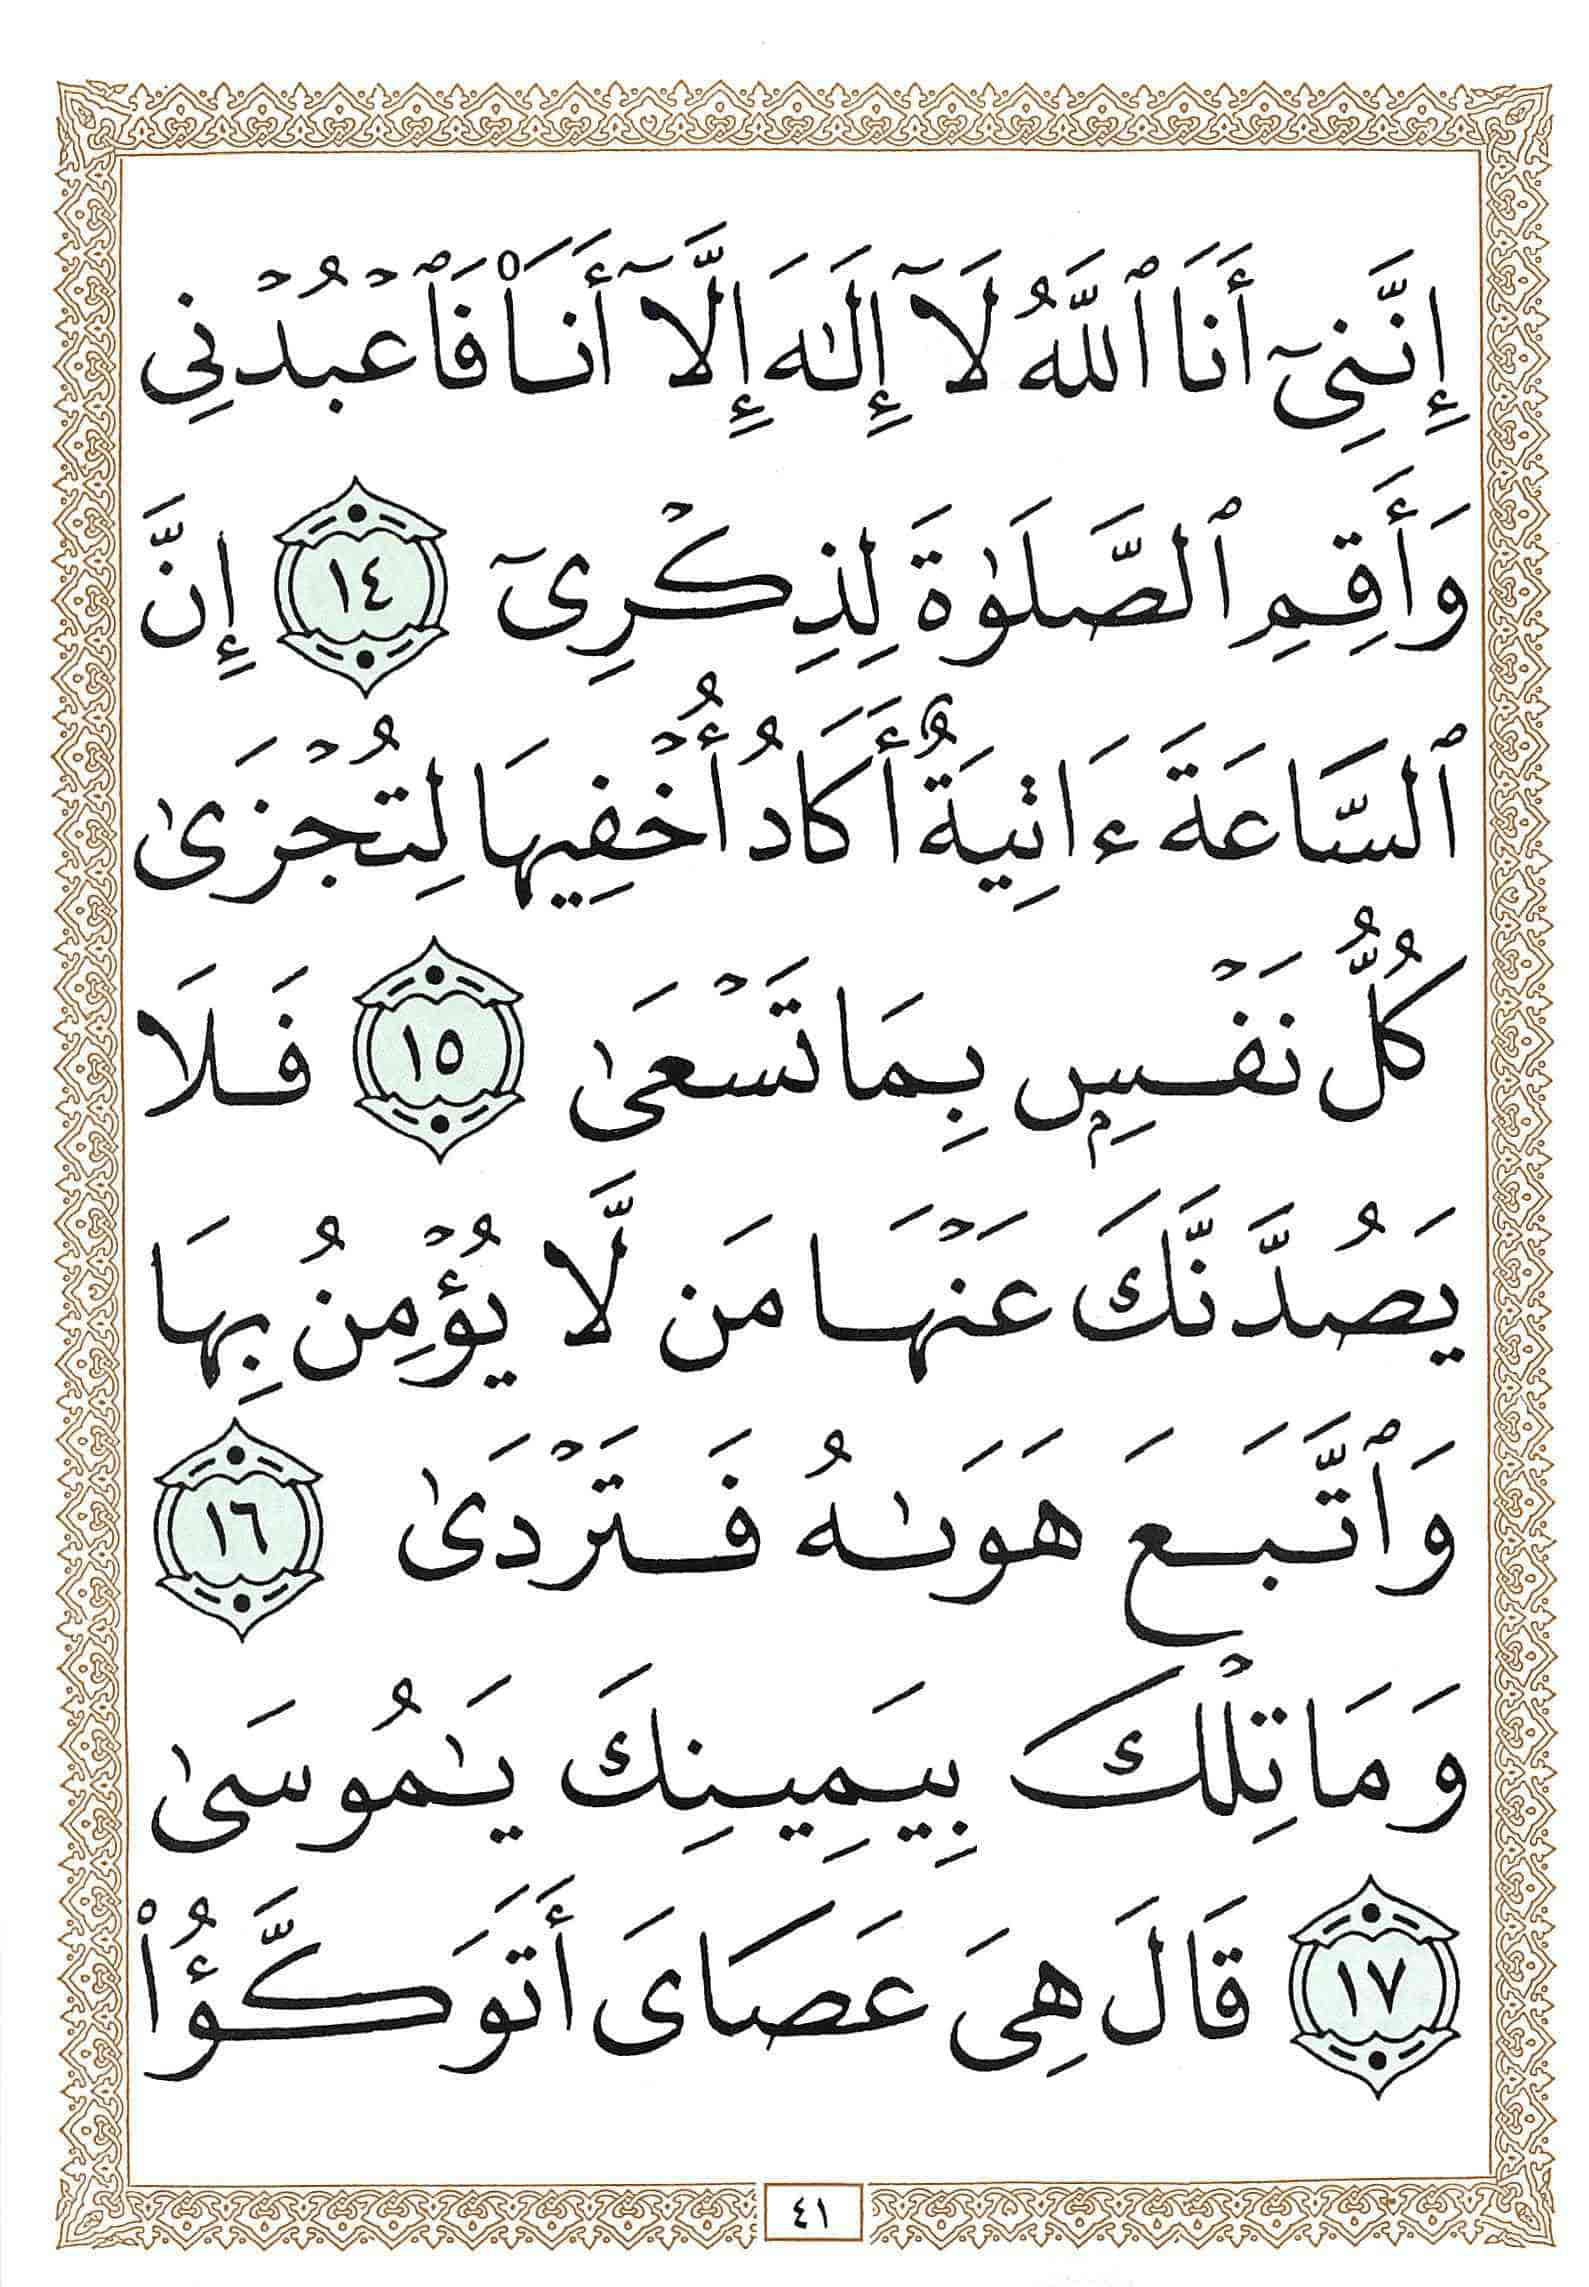 إِنَّنِىٓ أَنَا ٱللَّهُ لَآ إِلَـٰهَ إِلَّآ أَنَا۠ فَٱعۡبُدۡنِى
وَأَقِمِ ٱلصَّلَوٰةَ لِذِكۡرِىٓ ١٤ إِنَّ
ٱلسَّاعَةَ ءَاتِيَةٌ أَكَادُ أُخۡفِيهَا لِتُجۡزَىٰ
كُلُّ نَفۡسِۭ بِمَا تَسۡعَىٰ ١٥ فَلَا
يَصُدَّنَّكَ عَنۡهَا مَن لَّا يُؤۡمِنُ بِهَا
وَٱتَّبَعَ هَوَىٰهُ فَتَرۡدَىٰ ١٦
وَمَا تِلۡكَ بِيَمِينِكَ يَـٰمُوسَىٰ
١٧ قَالَ هِىَ عَصَاىَ أَتَوَكَّؤُا۟
٤١